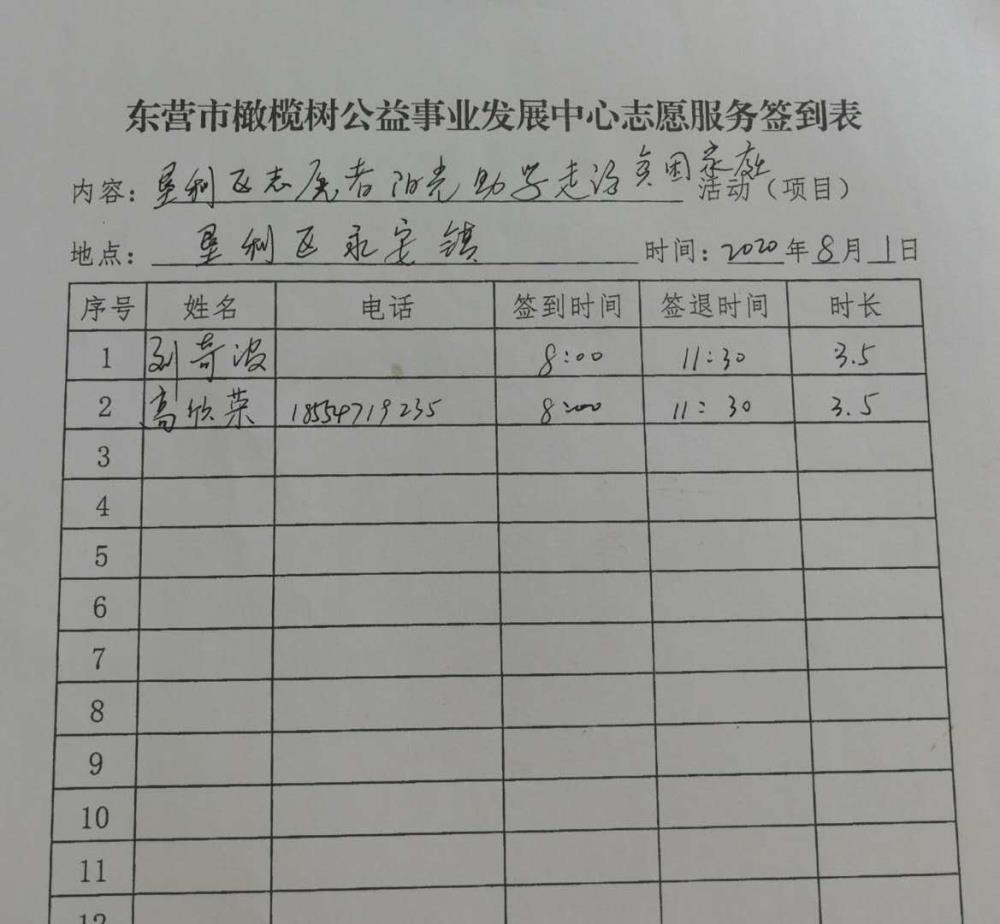 东营市橄榄树公益事业发展中心志愿服务签到表
内容：垦利区志愿者阳光助学走访贫困家庭活动（项目）
地点：垦利区永安镇 时间：2020年8月1日
序号 姓名 电话 签到时间 签退时间 时长
1 刘奇波 8:00 11:30 3.5
2 高欣荣 18554719235 8:00 11:30 3.5
3
4
5
6
7
8
9
10
11
12